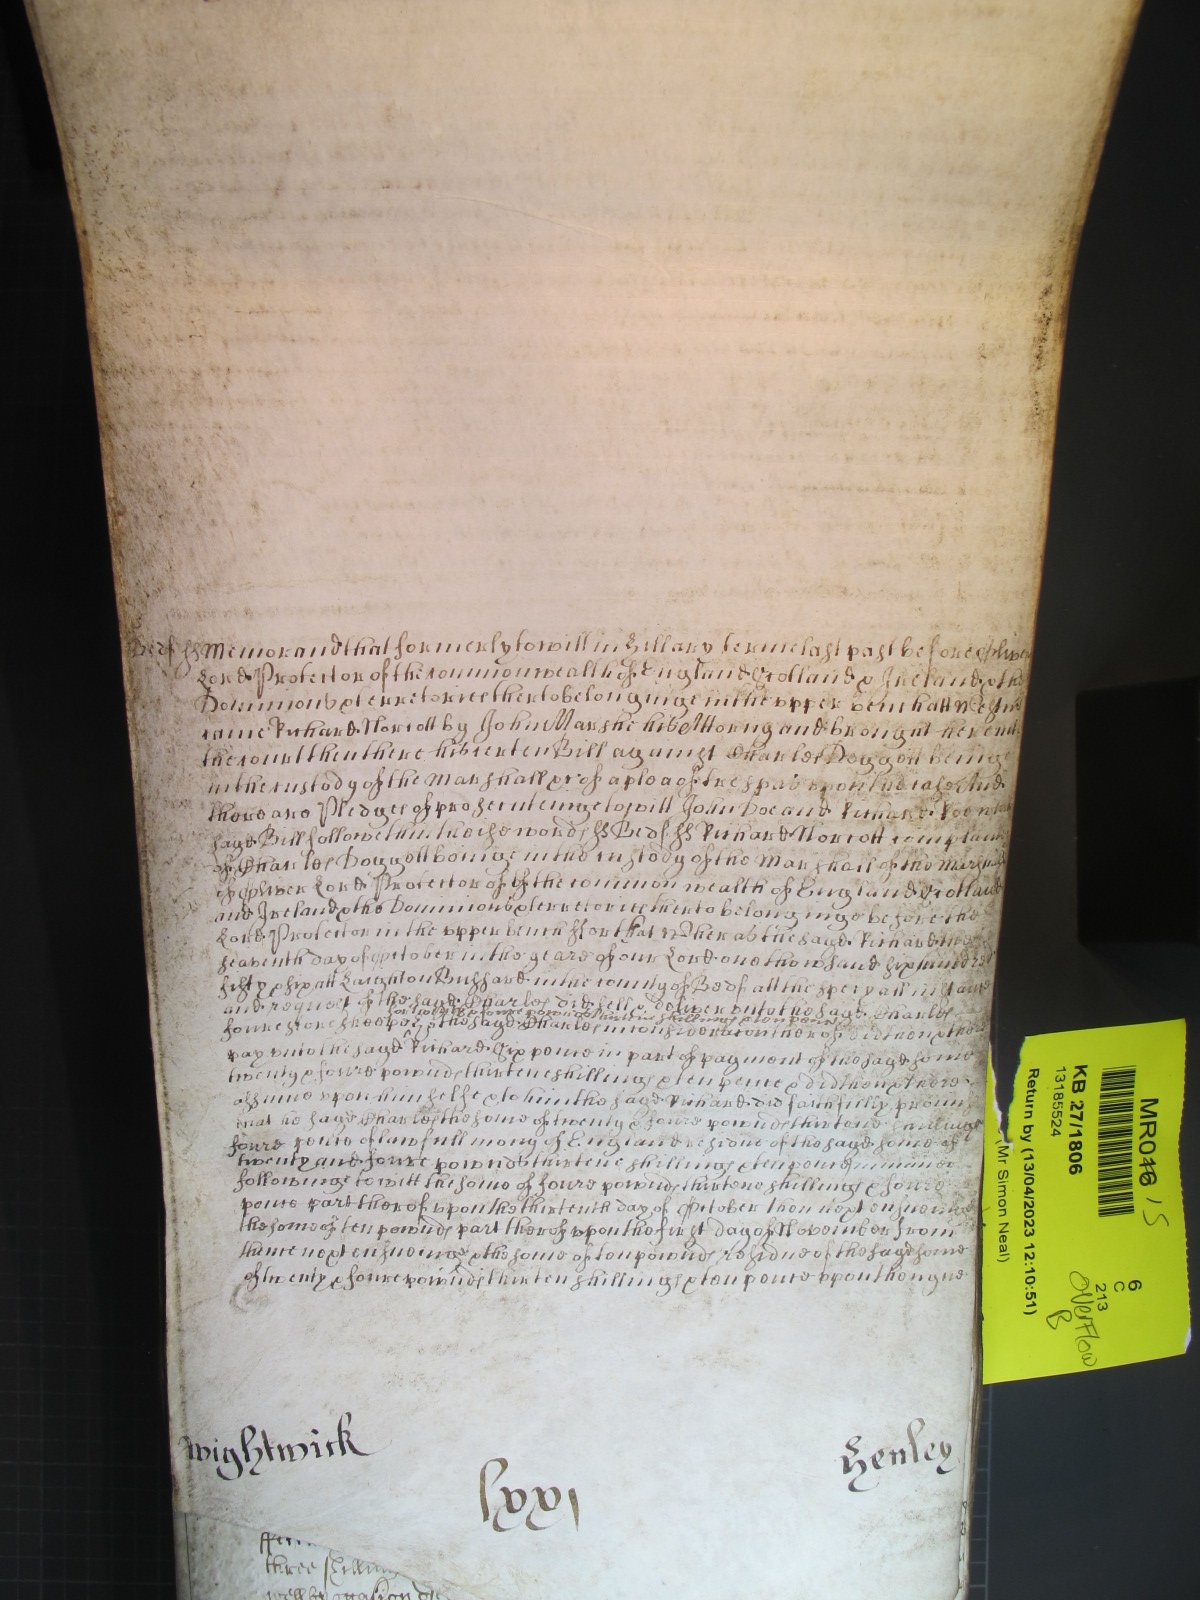 Bedf ss Memorand that formerly to witt in Hillary terme last past before Oliver
Lord Protector of the comonwealth of England Scotland & Ireland & the
Dominions & terretories therto belonginge in the upper bench att
came Richard Norcott by John Marshe his Attorny and brought here into
the court then there his certen Bill against Charles Doggett beinge
in the custody of the Marshall &c of a plea of trespas upon the case And
there are Pledges of prosecuteinge to witt John Doe and Richard Roe which
sayd Bill followeth in theise words ss Bedf ss Richard Norcott complaines
of Charles Doggett beinge in the custody of the Marshall of the Marshalsey
of Oliver Lord Protector of of the common wealth of England Scotland
and Ireland & the Dominions & terretories therto belonginge before the
Lord Protector in the upper bench ss for that wheras the sayd Richard the
seaventh day of October in the yeare of our Lord one thowsand six hundred
fifty & six att Laighton Bussard in the county of Bedf att the speciall instance
and request of the sayd Charles did sell & deliver unto the sayd Charles
for twenty & foure pownds thirtene shillings & ten pence
foure score sheepe & the sayd Charles in consideracon therof did then & there
pay unto the sayd Richard six pence in part of payment of the sayd some
twenty & foure pownds thirtene shillings & ten pence & did then & there
assume upon himselfe & to him the sayd Richard did faithfully promise
that he sayd Charles the some of twenty & foure pownds thirtene shillings
foure pence of lawfull mony of England residue of the sayd some of
twenty and foure pownds thirtene shillings & ten pence in manner
followinge to witt the some of foure pownds thirtene shillings & foure
pence part therof upon the thirtenth day of October then next ensueinge
the some of ten pownds part therof upon the first day of November from
thence next ensueinge & the some of ten pownds residue of the sayd some
of twenty & foure pownds thirten shillings & ten pence upon the
Wightwick
Henley
lxxj
three shillin
well by
MR046 / 15
KB 27/1806
13185524
Return by (13/04/2023 12:10:51)
(Mr Simon Neal)
6
C
213
Overflow
B